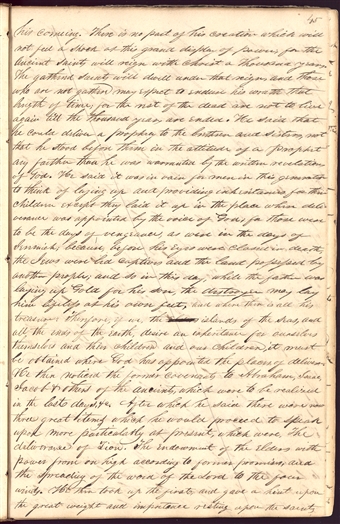 45
his coming. There is no part of his creation which will
not feel a shock at this grand display of power; for the
ancient Saints will reign with Christ a thousand years.
The gathered Saints will dwell under that reign and those
who are not gathered may expect to endure his wrath that
length of time, for the rest of the dead are not to live
again till the thousand years are ended. He said that
he could deliver a prophecy to the brethren and sisters, not
that he stood before them in the attitude of a prophet
any farther than he was warranted by the written revelation
of God. He said it was in vain for men in this generation
to think of laying up and providing inheritances for their
children except they laid it up in the place where deli-
verance was appointed by the voice of God; for these were
to be the days of vengeance, as were in the days of
Jeremiah; because, before his eyes were closed in death,
the Jews were led captives and the land possessed by
another people; and so in this day, while the father was
laying up Gold for his son, the destroyer may lay
him lifeless at his own feet; and where then is all his
treasure? Therefore, if we, the islands of the sea, and
all the ends of the earth, desire an inheritance for ourselves
themselves and their children and our children, it must
be obtained where God has appointed the places of deliverance
He then noticed the former covenants to Abraham, Isaac
Jacob & others of the ancients, which were to be realized
in the last days, &c. After which he said there were
three great things which he would proceed to speak
upon more particularly at present, which were, The
deliverance of Zion. The endowment of the Elders with
power from on high according to former promises; and
the spreading of the word of the Lord to the four
winds. He then took up the first and gave a hint upon
the great weight and importance resting upon the saints